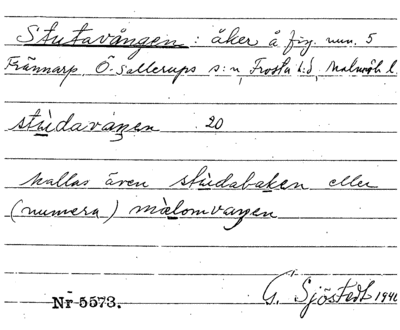 Stutavången: åker å fig. num. 5
Trännarp, Ö-Sallerups s:n, Frosta h:d, Malmöh. l.
stùdavåŋen 20
kallas även stùdabaken eller
(numera) mælomvaŋen
Nr 5573. G. Sjöstedt 1940